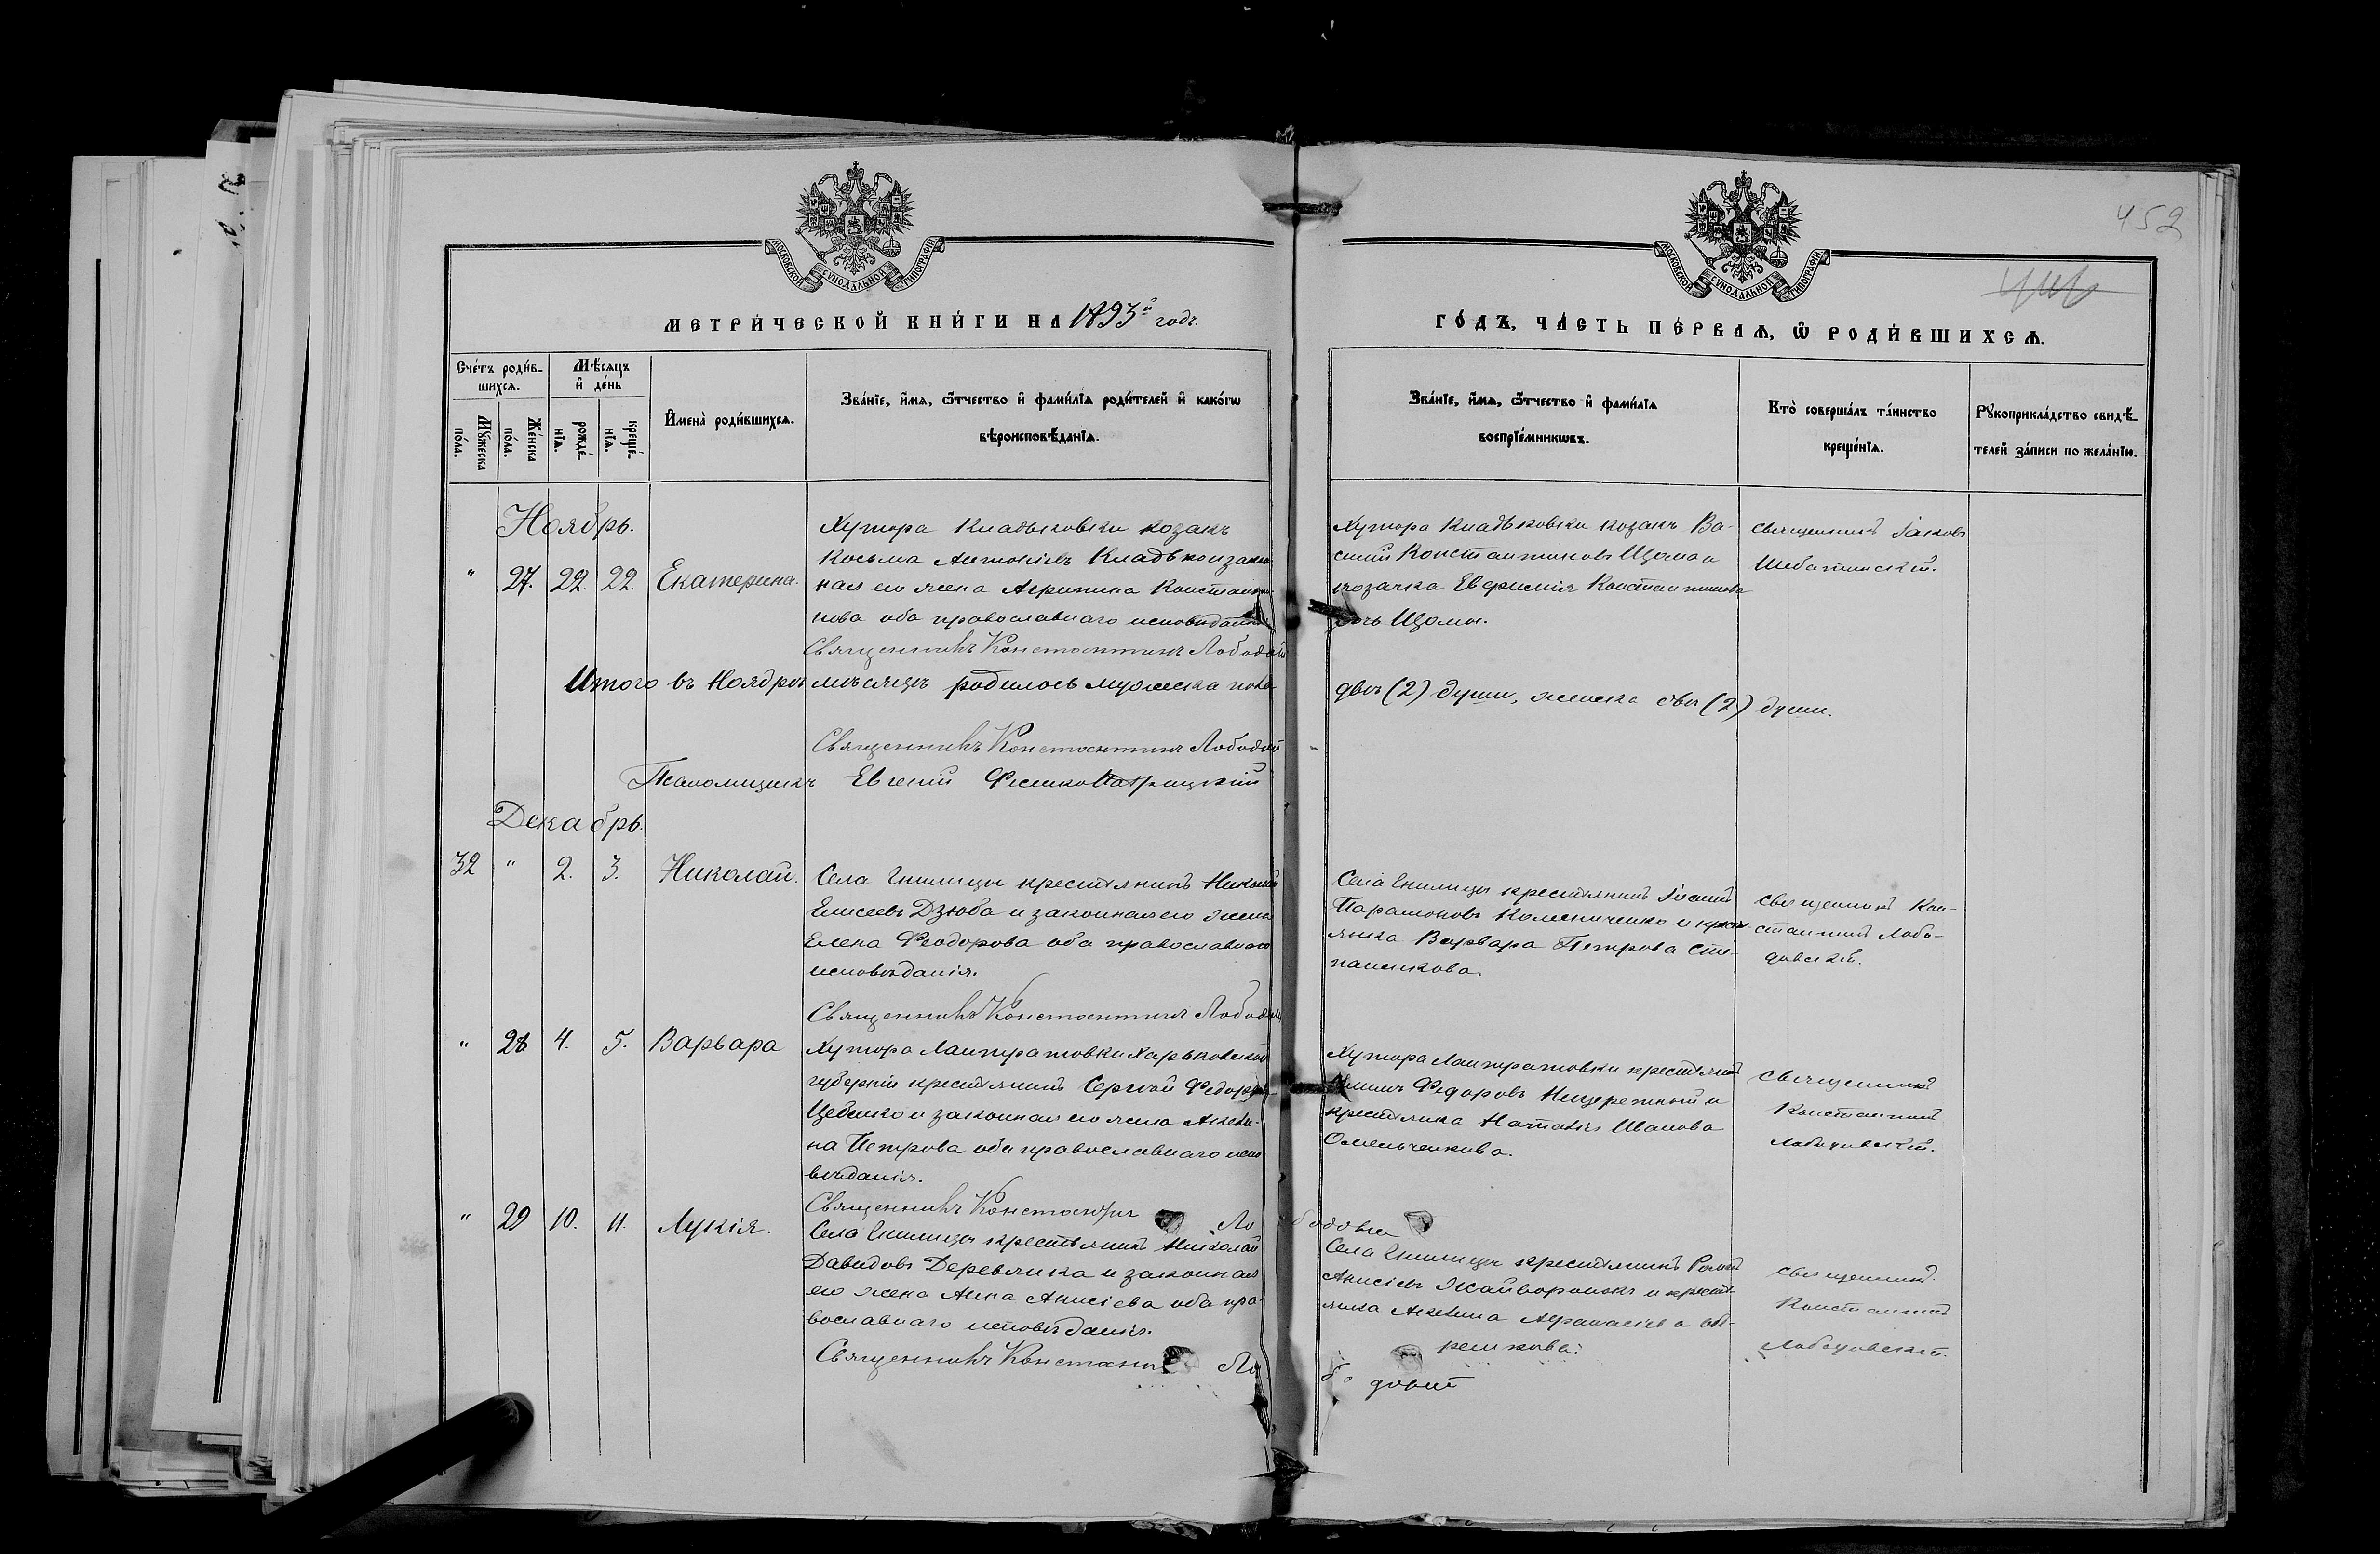 452
МЕТРИЧЕСКОЙ КНИГИ НА 1893й годъ.
ГОДЪ, ЧАСТЬ ПЕРВАЯ, Ѡ РОДИВШИХСЯ.
МОСКОВСКОЙ СѴНОДАЛЬНОЙ ТИПОГРАФІИ
МОСКОВСКОЙ СѴНОДАЛЬНОЙ ТИПОГРАФІИ
Счетъ родив-
шихся.
Мужеска пола.
Женска пола.
Мѣсяцъ
и день
рожде-
нія.
креще-
нія.
Имена родившихся.
Званіе, имя, отчество и фамилія родителей и какогѡ
вѣроисповѣданія.
Званіе, имя, отчество и фамилія
воспріемникѡвъ.
Кто совершалъ таинство
крещенія.
Рукоприкладство свидѣ-
телей записи по желанію.
Ноябрь.
" 27. 22. 22. Екатерина.
Хутора Кладьковки козакъ
Косьма Антоніевъ Кладько и закон-
ная его жена Агрипина Константи-
нова оба православнаго исповѣданія
Священникъ Константинъ Лободов
Хутора Кладьковки козакъ Ва-
силій Константиновъ Щома и
козачка Евфимія Константинова
дочь Щомы.
Священникъ Іаковъ
Итого въ Ноябрѣ мѣсяцѣ родилось мужеска пола
двѣ (2) души, женска двѣ (2) души.
Священникъ Константинъ Лободов
Псаломщикъ Евгеній
Декабрь.
32 " 2. 3. Николай.
Села Гнилицы крестьянинъ Николай
Елисеевъ Дзюба и законная его жена
Елена Феодорова оба православнаго
исповѣданія.
Священникъ Константинъ Лободов
Села Гнилицы крестьянинъ
Парамоновъ Коломіченко и крест-
янка Варвара Петрова Сте-
паненкова.
священникъ Кон-
стантинъ Лобо-
довскій.
" 28 4. 5. Варвара
Хутора Лантратовки Харьковской
губерніи крестьянинъ Сергѣй Федоровъ
Цебенко и законная его жена Акели-
на Петрова оба православнаго испо-
вѣданія.
Священникъ Константинъ Ло бодовск
Хутора Лантратовки крестьян
Федоровъ Нищережный и
крестьянка Наталія Иванова
Омельченкова.
священникъ
Константинъ
Лободовскій.
" 29 10. 11. Лукія.
Села Гнилицы крестьянинъ Николай
Давидовъ Деревянка и законная
его жена Анна Анисіева оба пра-
вославнаго исповѣданія.
Священникъ Константинъ Ло бо довск
Села Гнилицы крестьянинъ Романъ
Анисіевъ Жайворонокъ и крест-
янка Акелина Афанасіева
священникъ
Константинъ
Лободовскій.